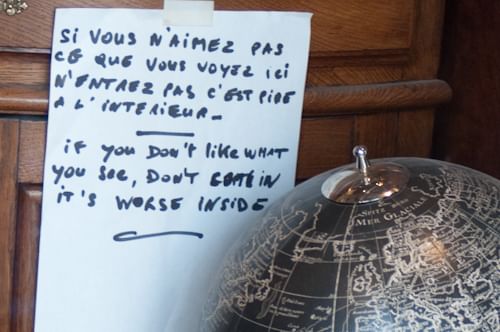 SI VOUS N'AIMEZ PAS
CE QUE VOUS VOYEZ ICI
N'ENTREZ PAS C'EST PIRE
A L'INTERIEUR_
if you Don't like WHAT
you see, DON'T IN
iT'S WORSE INSIDE
MER GLACIALE